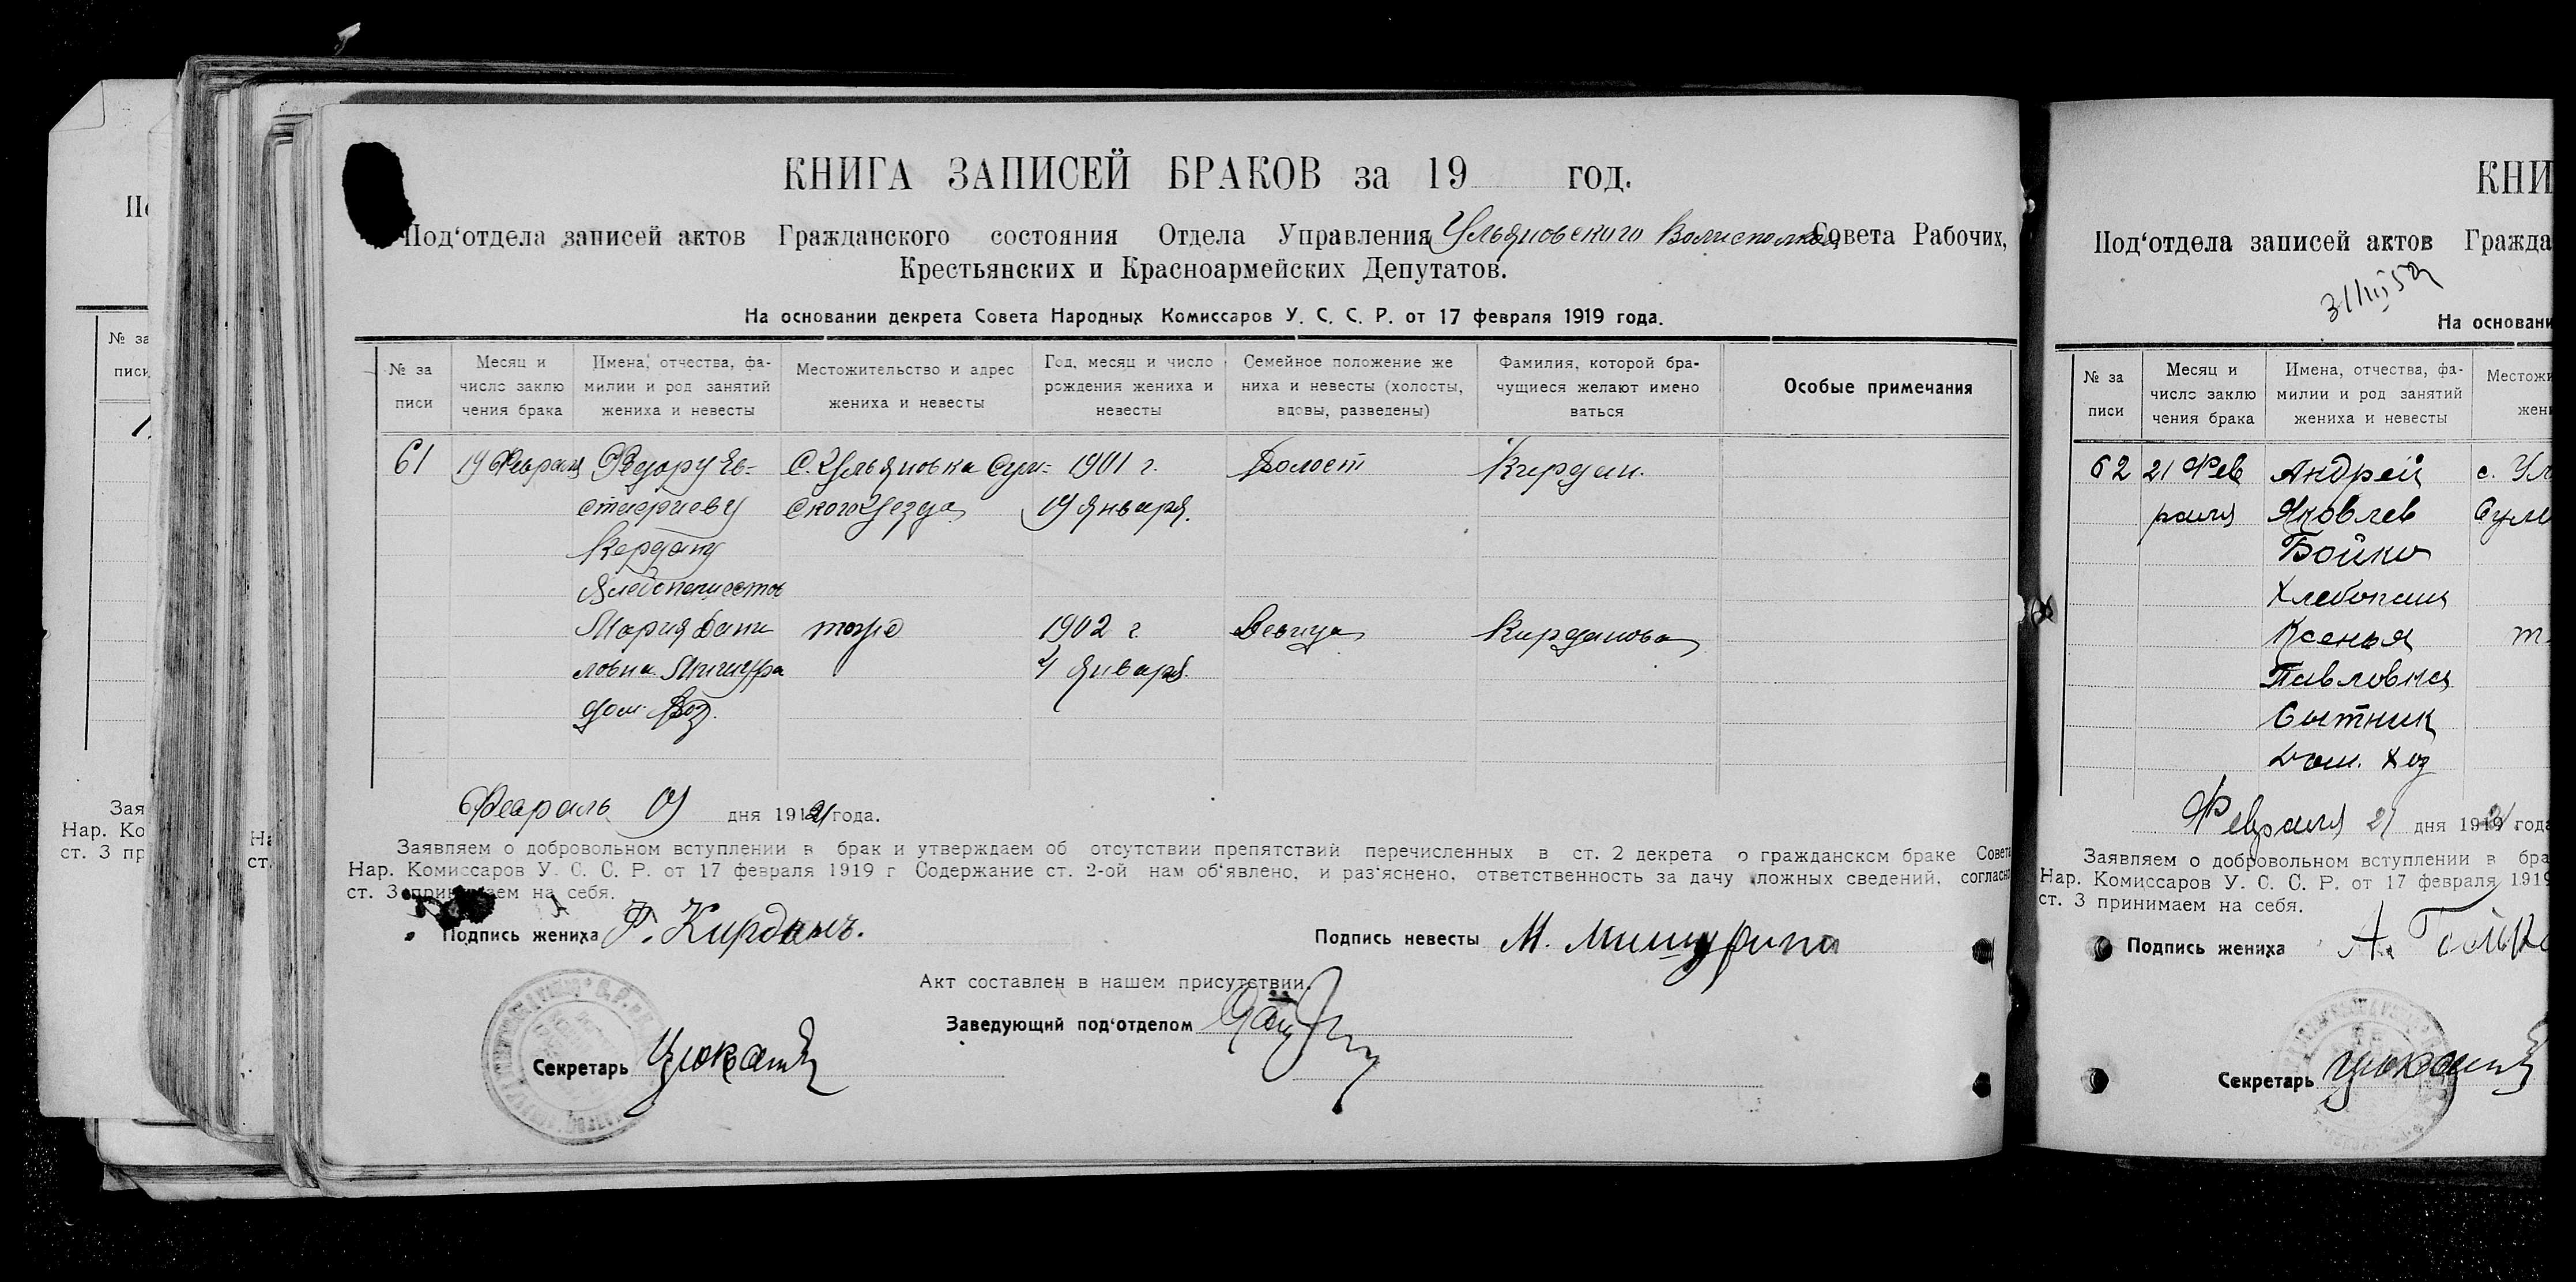 КНИГА ЗАПИСЕЙ БРАКОВ за 19 год.
Под'отдела записей актов Гражданского состояния Отдела Управления Ульяновского Волисполком Совета Рабочих,
Крестьянских и Красноармейских Депутатов.
На основании декрета Совета Народных Комиссаров У. С. С. Р. от 17 февраля 1919 года.
№ за
писи
Месяц и
число заклю
чения брака
Имена, отчества, фа-
милии и род занятий
жениха и невесты
Местожительство и адрес
жениха и невесты
Год, месяц и число
рождения жениха и
невесты
Семейное положение же
ниха и невесты (холосты,
вдовы, разведены)
Фамилия, которой бра-
чущиеся желают имено
ваться
Особые примечания
61
19 Февраля
Федору Ев-
стафиеву
Кердану
С. Ульяновка Сум-
ского Уезда
1901 г.
19 января.
Холост
Кирдан.
Мария Дани
ловна Мишура
дом. Хоз.
тоже
1902 г.
21 января
Девица
Кирданова
Февраль 19 дня 1921 года.
Заявляем о добровольном вступлении в брак и утверждаем об отсутствии препятствий перечисленных в ст. 2 декрета о гражданском браке Совета
Нар. Комиссаров У. С. С. Р. от 17 февраля 1919 г Содержание ст. 2-ой нам об'явлено, и раз'яснено, ответственность за дачу ложных сведений, согласно
ст. 3 принимаем на себя.
Подпись жениха Ф. Кирданъ.
Подпись невесты М. Мишурина
Акт составлен в нашем присутствии.
Заведующий под'отделом
Секретарь
КНИ
Под'отдела записей актов Гражда
На основани
№ за
писи
Месяц и
число заклю
чения брака
Имена, отчества, фа-
милии и род занятий
жениха и невесты
Местожи
жен
62
21 Фев
раля
Андрей
Яковлев
Бойко
Хлебопаш
Ксенья
Павловна
Сытник
Дом. Хоз
с. Ул
Сумс
т
Февраля 21 дня 1921 года
Заявляем о добровольном вступлении в бра
Нар. Комиссаров У. С. С. Р. от 17 февраля 1919
ст. 3 принимаем на себя.
Подпись жениха А. Бойко
Секретарь
№ за
писи
Зая
Нар. Ко
ст. 3 пр
На
ст.